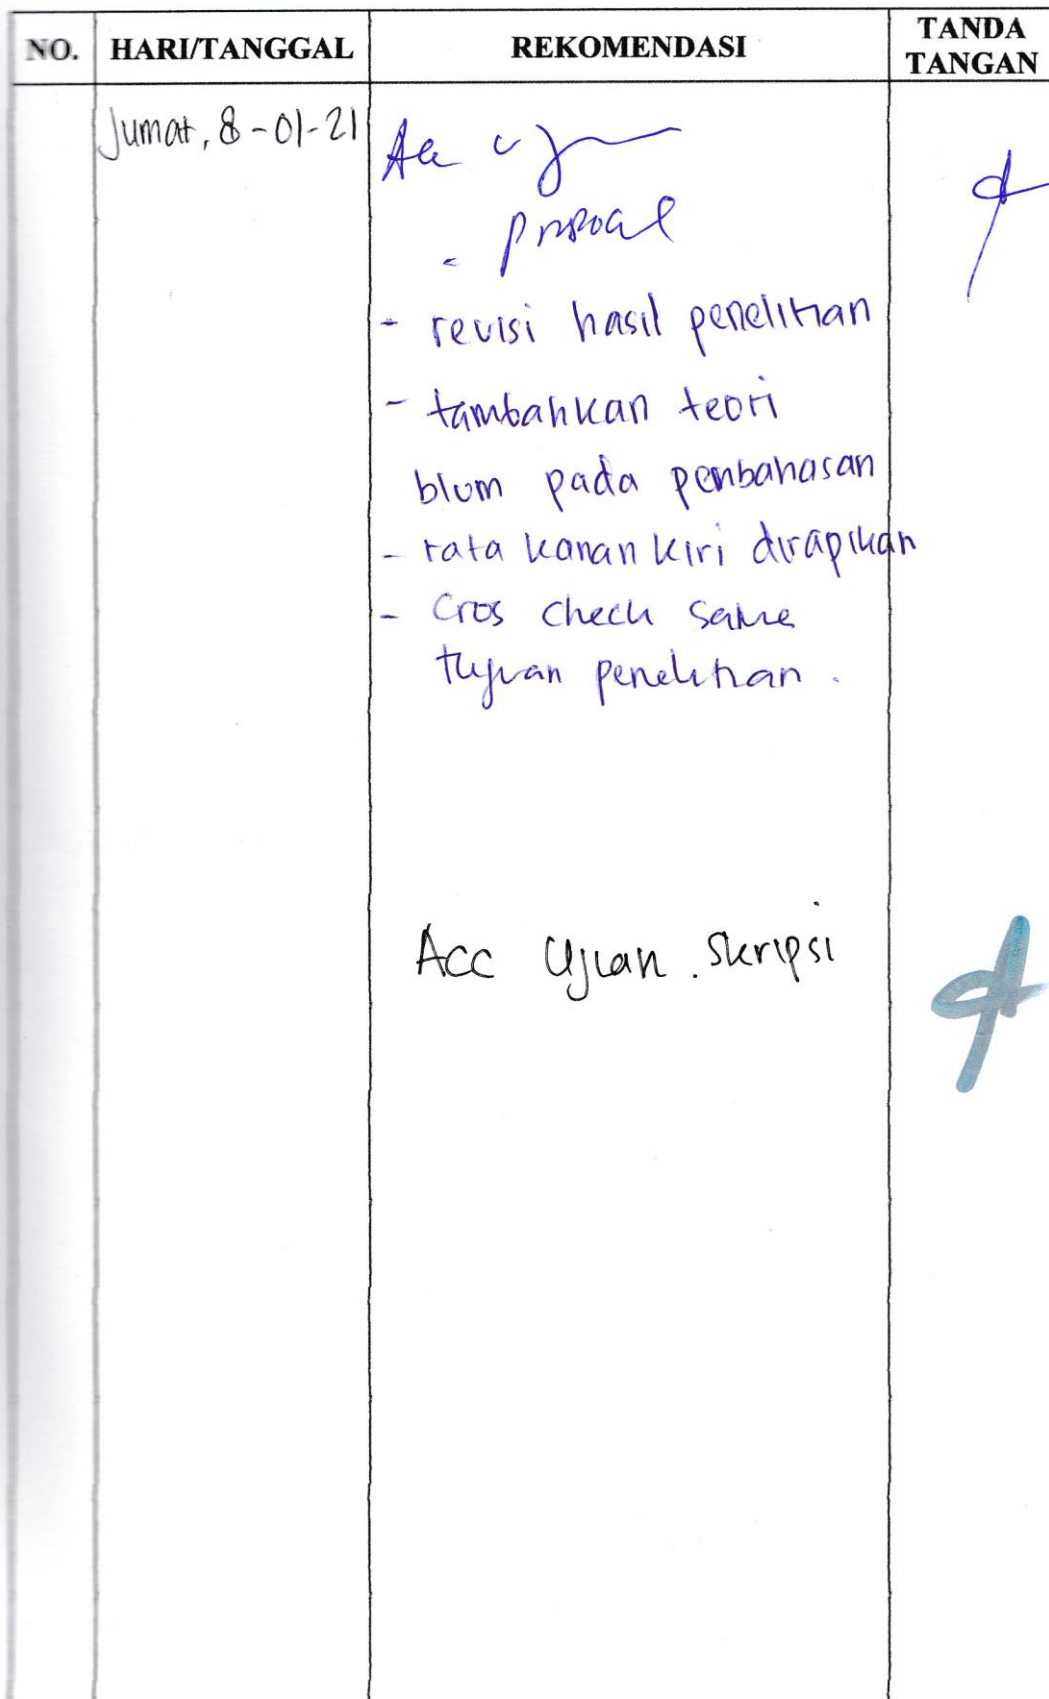 NO. HARI/TANGGAL REKOMENDASI TANDA TANGAN
Jumat, 8-01-21
Acc
proposal
- revisi hasil penelitian
- tambahkan teori
blum pada penbahasan
- rata kanan kiri dirapikan
- Cros check
tujuan penelitian.
Acc Ujian Skripsi